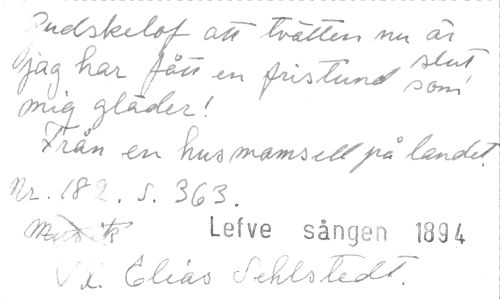 Gudskelof att tvätten nu är slut
jag har fått en fristund som
mig gläder!
Från en husmamsell på landet.
Nr. 182. s. 363.
Musik Lefve sången 1894
V. i. Elias Sehlstedt.